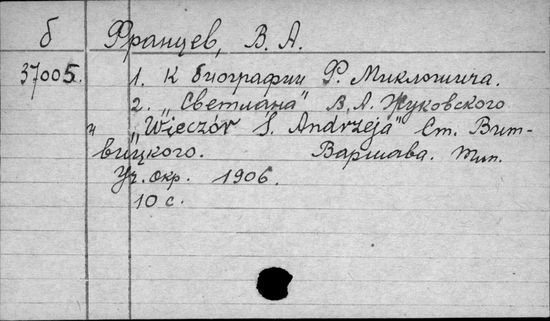 б Францев, В. А.
37005. 1. К биографии Ф. Миклошича.
2. „Светлана" В. А. Жуковского
и „Wieczór S. Andrzeja" Ст. Вит-
вицкого. Варшава. Тип.
Уч. Окр. 1906.
10 с.